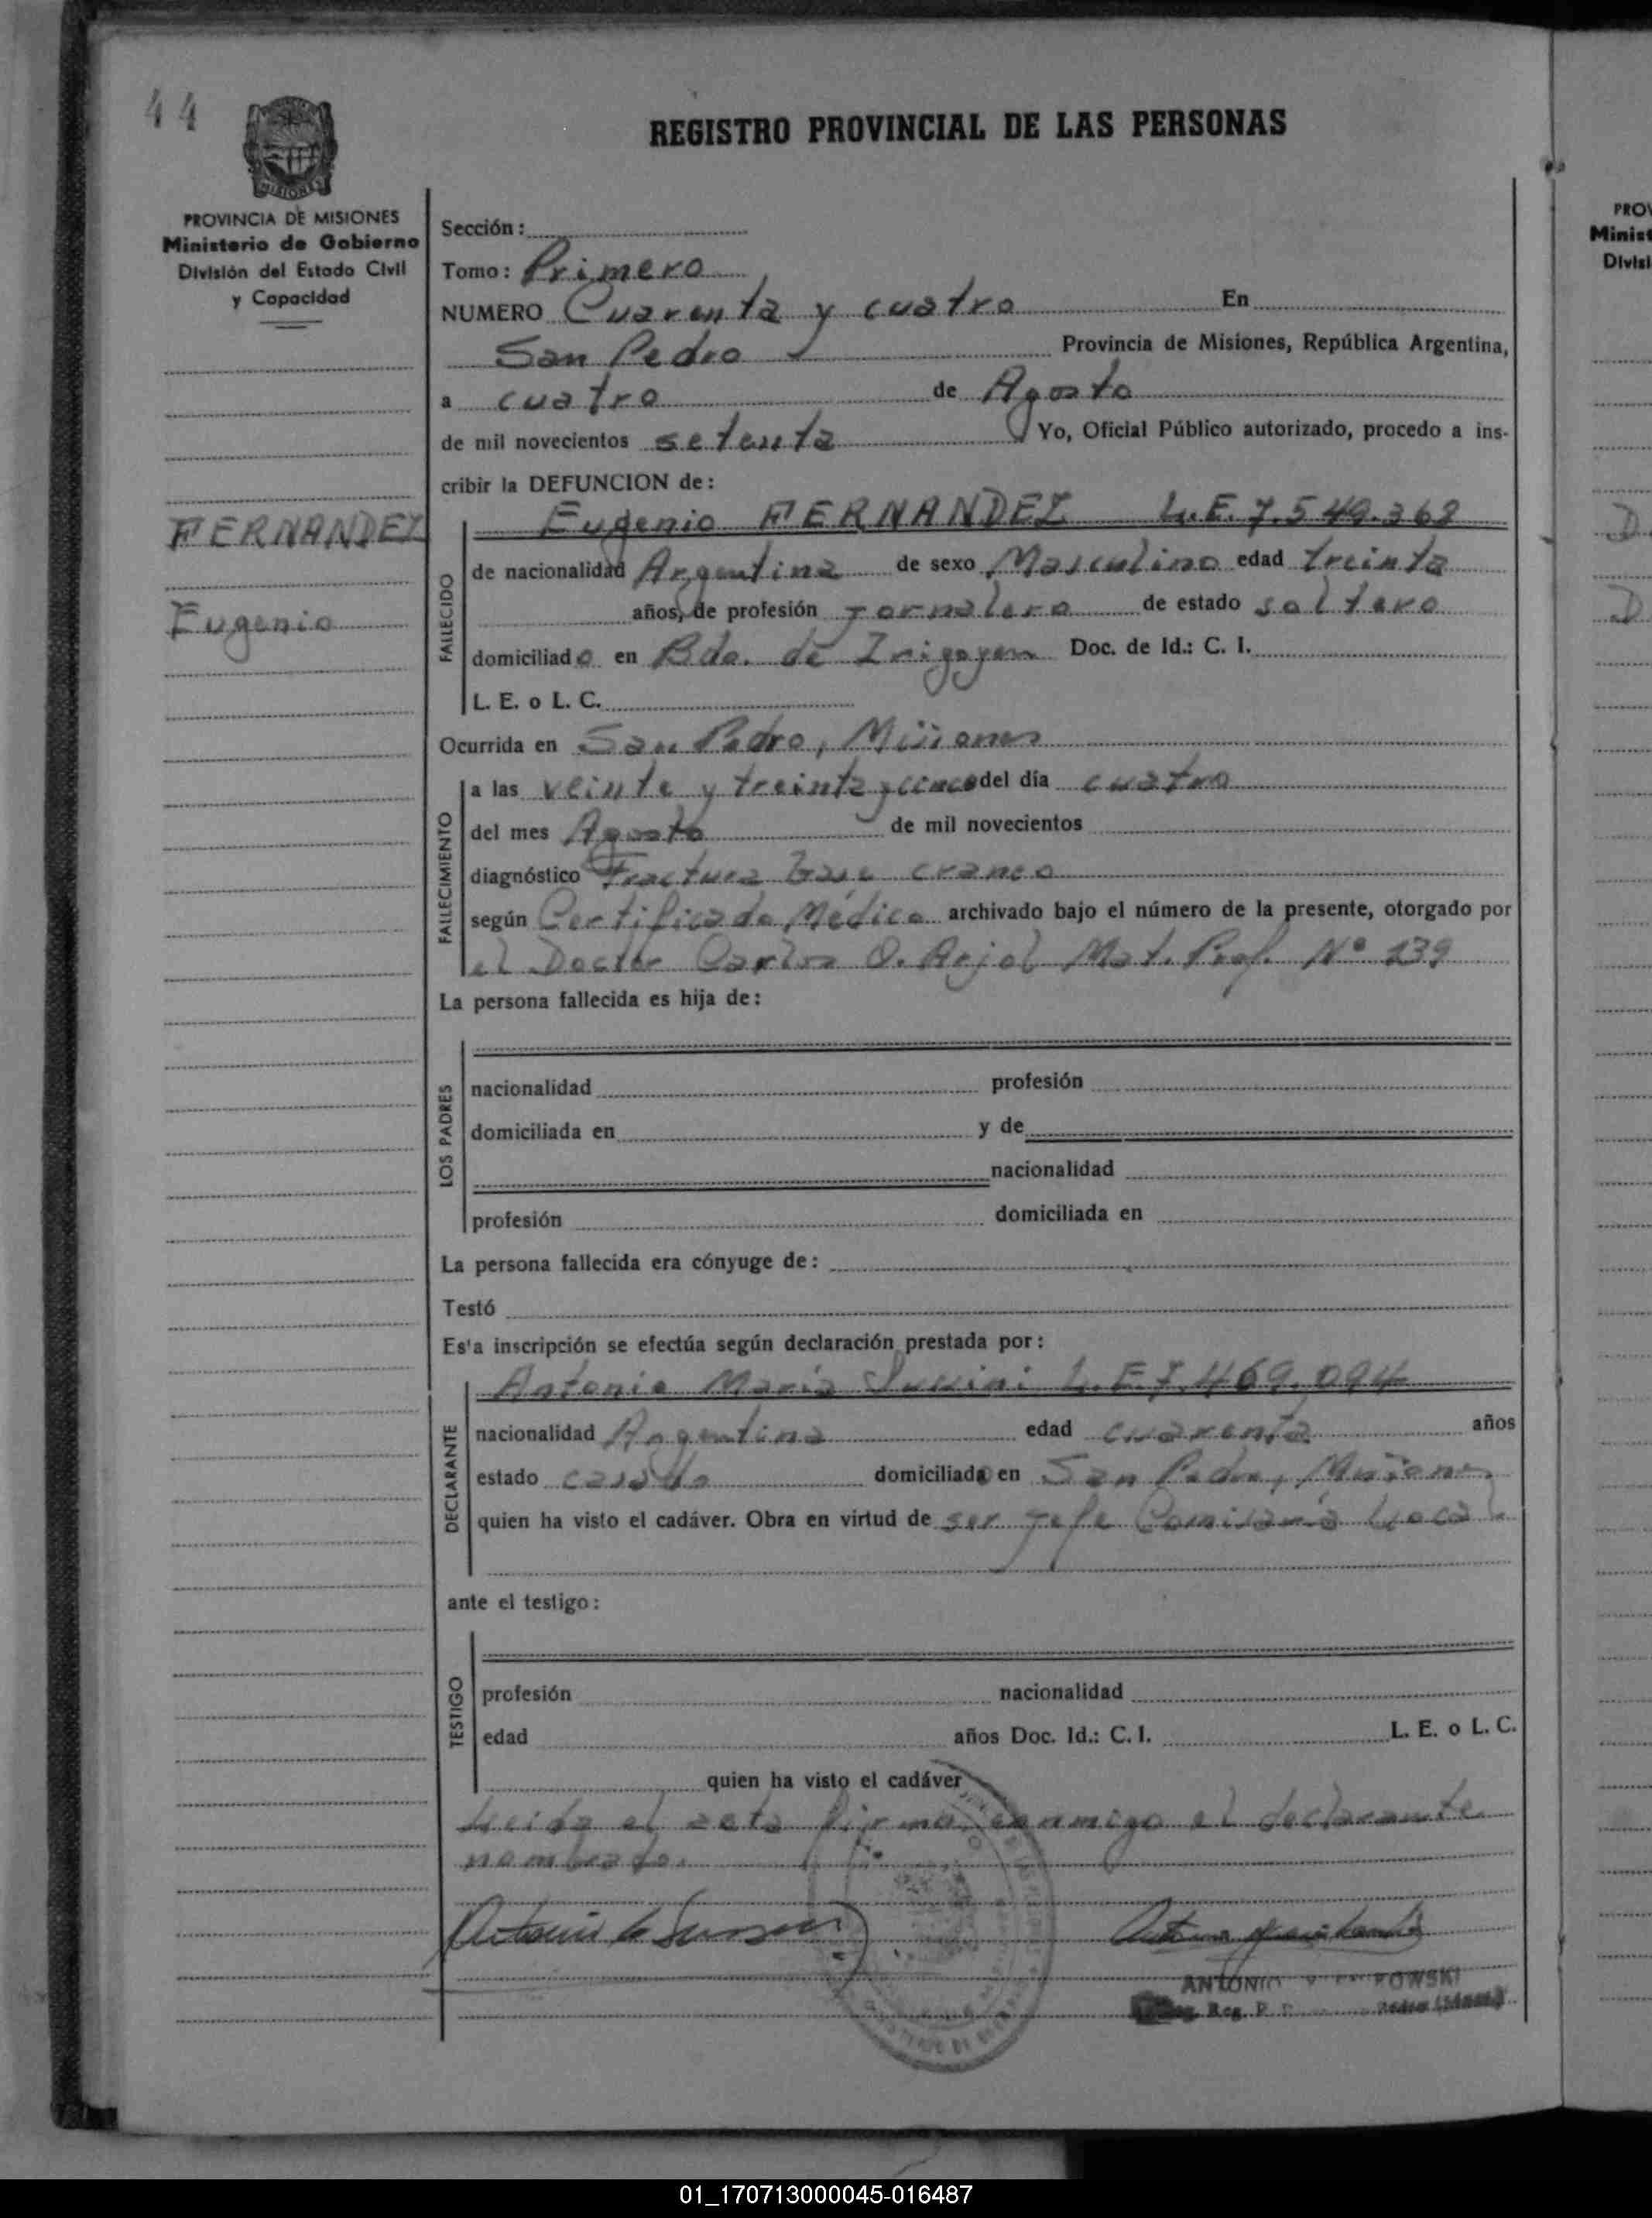 44
MISIONES
PROVINCIA DE MISIONES
Ministerio de Gobierno
División del Estado Civil
y Capacidad
FERNANDEZ
Eugenio
REGISTRO PROVINCIAL DE LAS PERSONAS
Sección:
Tomo: Primero
NUMERO Cuarenta y cuatro En
San Pedro Provincia de Misiones, República Argentina,
a cuatro de Agosto
de mil novecientos setenta Yo, Oficial Público autorizado, procedo a ins-
cribir la DEFUNCION de:
Eugenio FERNANDEZ L.E. 7.549.368
FALLECIDO
de nacionalidad Argentina de sexo Masculino edad treinta
años, de profesión jornalero de estado soltero
domiciliado en Bdo. de Irigoyen Doc. de Id.: C. I.
L. E. o L. C.
Ocurrida en San Pedro, Misiones
FALLECIMIENTO
a las veinte y treinta y cinco del día cuatro
del mes Agosto de mil novecientos
diagnóstico Fractura base craneo
según Certificado Médico archivado bajo el número de la presente, otorgado por
el Doctor Carlos O. Arjol Mat. Prof. Nº 139
La persona fallecida es hija de:
LOS PADRES
nacionalidad profesión
domiciliada en y de
nacionalidad
profesión domiciliada en
La persona fallecida era cónyuge de:
Testó
Es'a inscripción se efectúa según declaración prestada por:
Antonio María L.E. 7.469.094
DECLARANTE
nacionalidad Argentina edad cuarenta años
estado casado domiciliado en San Pedro, Misiones
quien ha visto el cadáver. Obra en virtud de ser jefe Comisaría Local
ante el testigo:
TESTIGO
profesión nacionalidad
edad años Doc. Id.: C. I. L. E. o L. C.
quien ha visto el cadáver
Leida el acta firma conmigo el declarante
nombrado.
ANTONIO
Reg.
PROV
Minist
Divisi
D
D
01_170713000045-016487